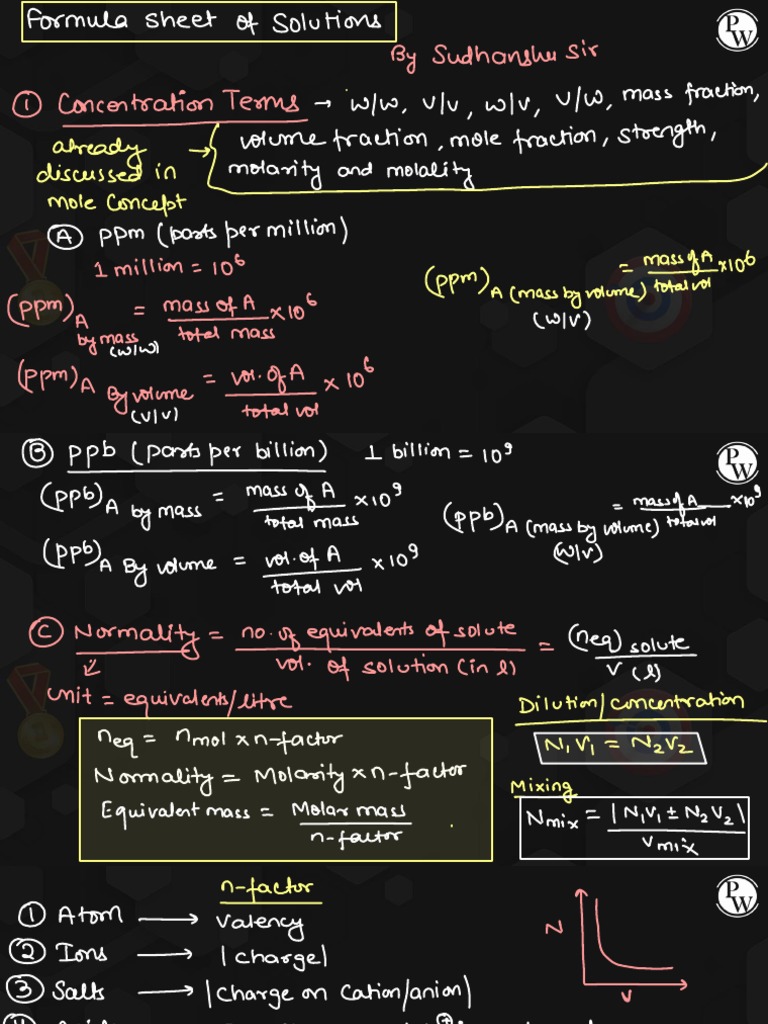 Formula Sheet of Solutions
PW
By Sudhanshu Sir
① Concentration Terms → w/w, v/v, w/v, v/w, mass fraction,
already discussed in Mole Concept → volume fraction, mole fraction, strength,
molarity and molality
Ⓐ ppm (parts per million)
1 million = 10⁶
(ppm)A by mass (w/w) = mass of A / total mass × 10⁶
(ppm)A (mass by volume) (w/v) = mass of A / total vol × 10⁶
(ppm)A By volume (v/v) = vol. of A / total vol × 10⁶
Ⓑ ppb (parts per billion) 1 billion = 10⁹
PW
(ppb)A by mass = mass of A / total mass × 10⁹
(ppb)A (mass by volume) (w/v) = mass of A / total vol × 10⁹
(ppb)A By volume = vol. of A / total vol × 10⁹
Ⓒ Normality = no. of equivalents of solute / vol. of solution (in l) = (neq) solute / V (l)
Unit = equivalents/litre
neq = nmol × n-factor
Normality = Molarity × n-factor
Equivalent mass = Molar mass / n-factor
Dilution/concentration
N₁V₁ = N₂V₂
Mixing
Nmix = |N₁V₁ ± N₂V₂| / Vmix
n-factor
PW
① Atom → Valency
② Ions → |charge|
③ Salts → |Charge on Cation/anion|
N
V